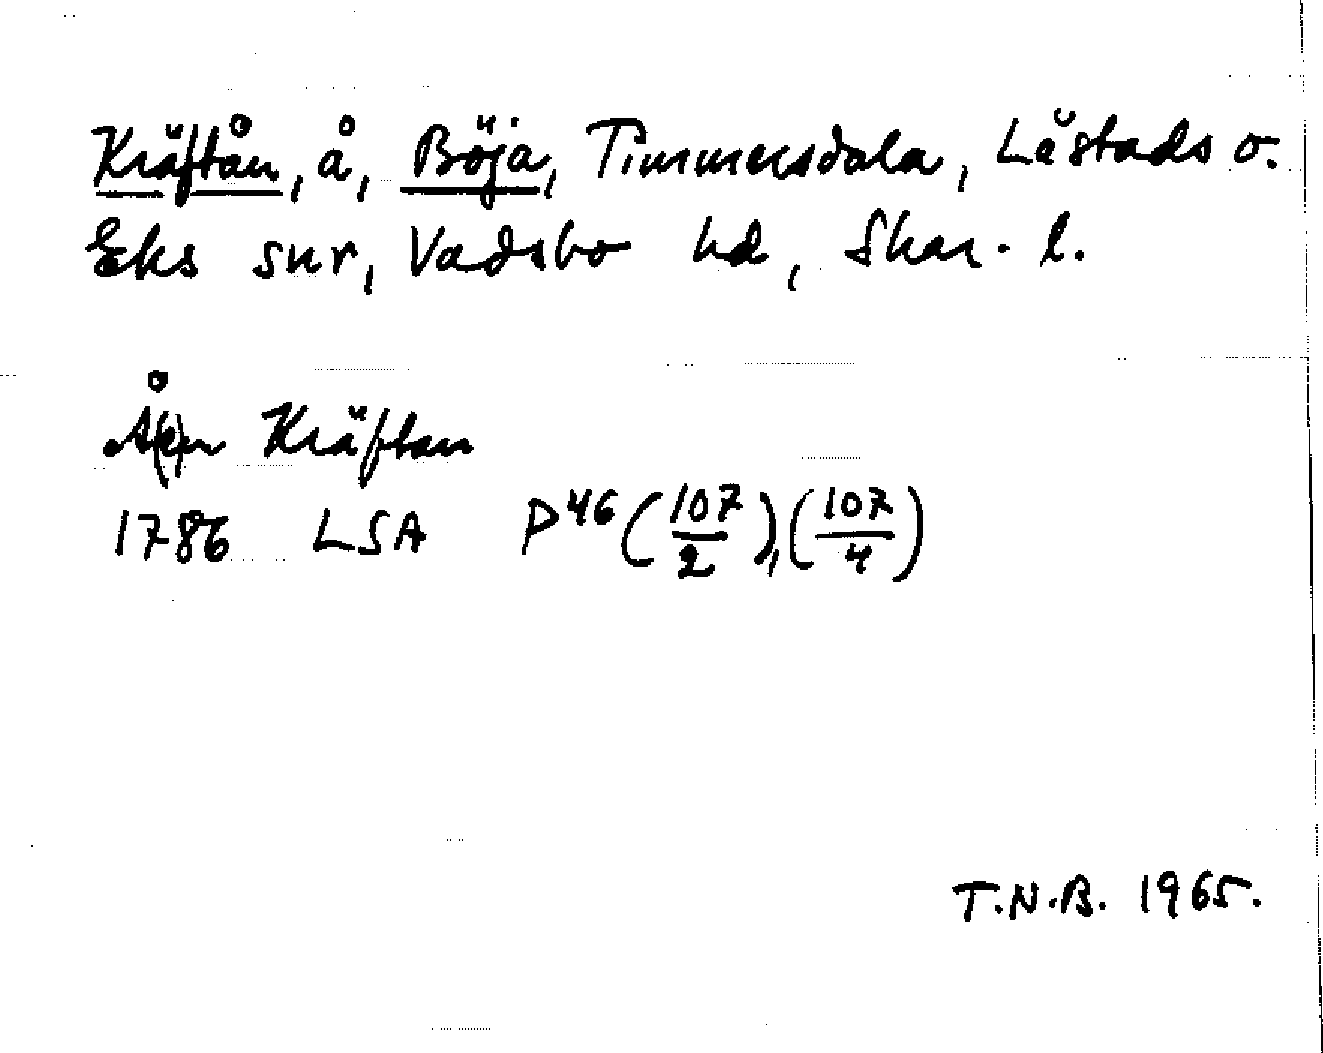 Kräftån, å, Böja, Timmersdala, Låstads o.
Eks snr, Vadsbo hd, Skar. l.
Å(e)n Kräftan
1786 LSA P46 (107/2), (107/4)
T.N.B. 1965.